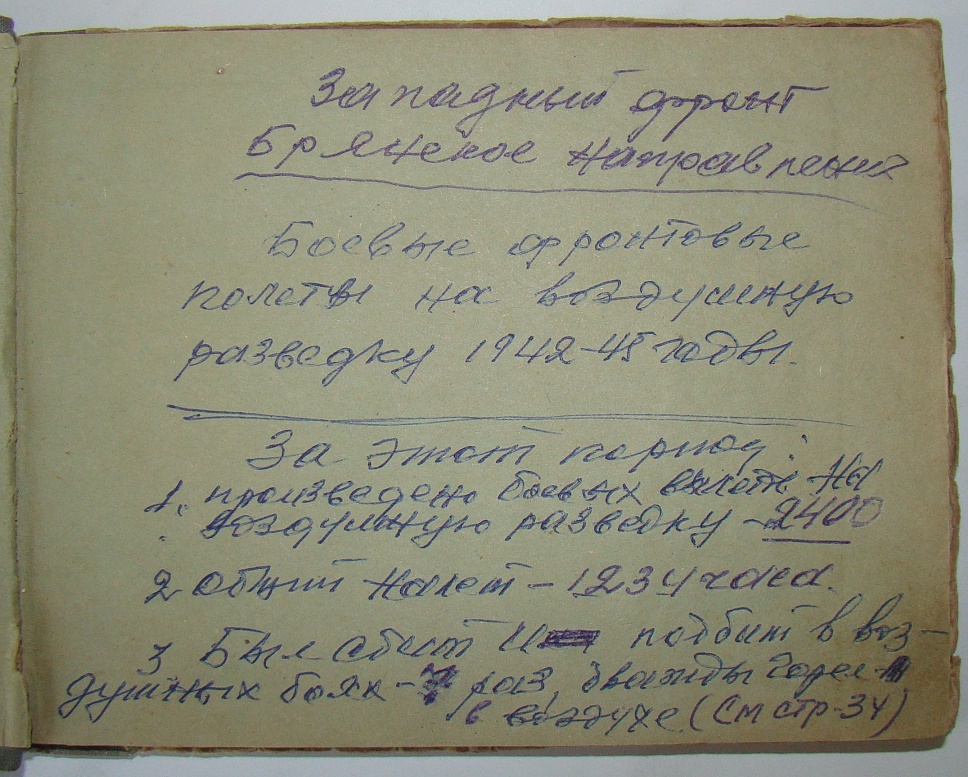 Западный фронт
Брянское направление
Боевые фронтовые
полеты на воздушную
разведку 1942-45 годы.
За этот период:
1. произведено боевых вылетов на
воздушную разведку - 2400
2 общий налет - 1234 часа.
3 Был сбит и подбит в воз-
душных боях - раз, дважды горел
в воздухе (См стр-34)